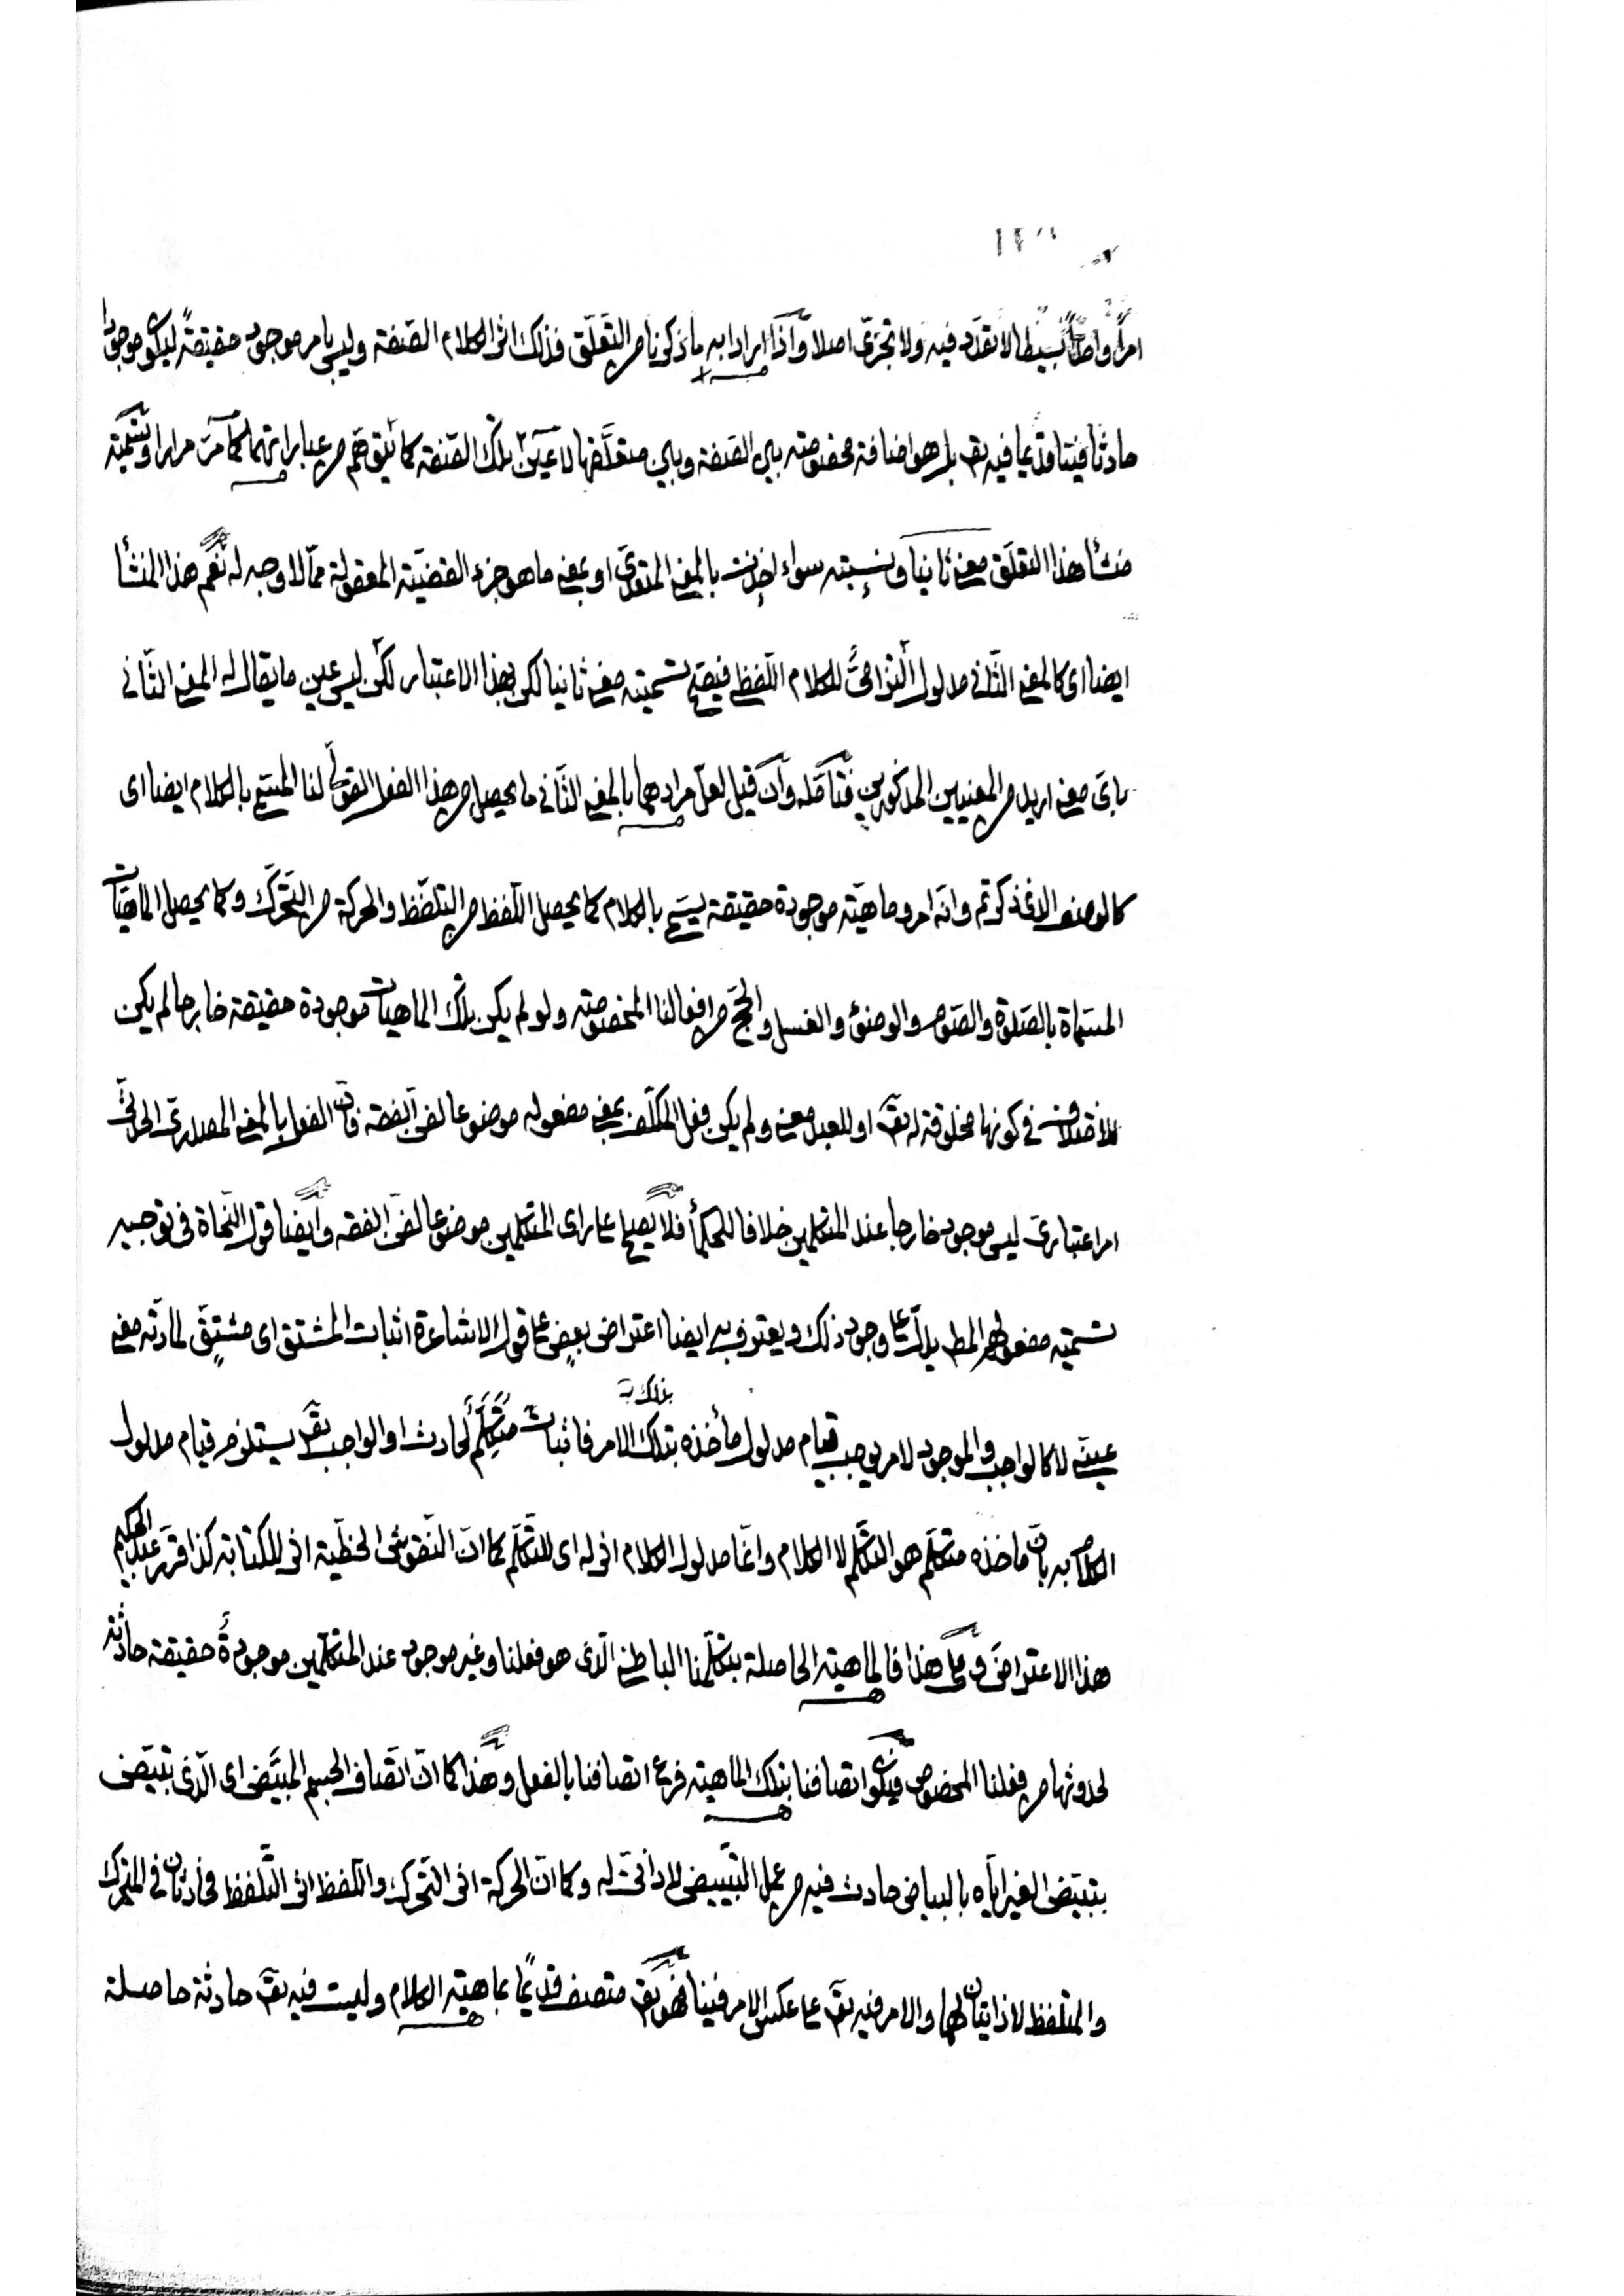 امرا واحدا بسيطا لا تعدد فيه ولا تجزى اصلا وان ارادا به ما ذكرنا من التعلق فذلك اثر الكلام الصفة وليس بامر موجود حقيقةً ليكون موجودا
حادثا فينا وقديما فيه تع بل هو اضافة مخصوصة بين الصفة وبين متعلقها لا عين تلك الصفة كما يتوهم من عباراتهما كما مرّ مرارا وتسمية
منشأ هذا التعلق معنى ثانيا ونسبته سواء اخذت بالمعنى المتعدى او بمعنى ما هو جزء القضية المعقولة ممّا لا وجه له نعم هذا المنشأ
ايضا اى كالمعنى الثانى مدلول التزامىّ للكلام اللفظى فيصح تسميته معنى ثانيا لكن بهذا الاعتبار لكن ليس عين ما يقال له المعنى الثانى
باى معنى اريد من المعنيين المذكورين فتأمله وان قيل لعل مرادهما بالمعنى الثانى ما يحصل من هذا الفعل لنا المسمى بالكلام ايضا اى
كالوصف الاغذ كرتم وانه امر وماهية موجودة حقيقة يسمى بالكلام كما يحصل اللفظ من التلفظ والحركة من التحرك وكما يحصل الماهيات
المسماة بالصلوة والصوم والوضوء والغسل والحج من افعالنا المخصوصة ولو لم يكن تلك الماهيات موجودة حقيقة خارجا لم يكن
للاختلاف فى كونها مخلوقة له تع او للعبد معنى ولم يكن فعل المكلف بمعنى مفعوله موضوعا لفن الفقه فان الفعل بالمعنى المصدرى الحدثى
امر اعتبارى ليس موجود خارجا عند المتكلمين خلافا للحكماء فلا يصح على راى المتكلمين موضوعا لفن الفقه وايضا قول النحاة فى توجيه
تسمية مفعولهم المط يدل على وجود ذلك ويعترف به ايضا اعتراض بعض على قول الاشاعرة اثبات المشتق اى مشتق لمادته معنى
عينى لا كالواجب والموجود لامر يوجب قيام مدلول مأخذه بذلك الامر فاثبات متكلم لحادث او الواجب تع يستلزم قيام مدلول
الكلام به بان ماخذه متكلم هو التكلم لا الكلام وانما مدلول الكلام اثر له اى للتكلم كما ان النقوش الخطية اثر للكتابة كذا قرر عبد الحكيم
هذا الاعتراض وعلى هذا فالماهية الحاصلة بتكلمنا الباطنى الذى هو فعلنا وغير موجود عند المتكلمين موجودةً حقيقة حادثة
لحدوثها من فعلنا المخصوص فيكون اتصافنا بتلك الماهية فرع اتصافنا بالفعل وهذا كما ان اتصاف الجسم المبيّض اى الذى يتبيّض
بتبيض الغير اياه بالبياض حادث فيه من عمل التبييض لا ذاتى له وكما ان الحركة اثر التحرك واللفظ اثر التلفظ حادثان فى المتحرك
والمتلفظ لا ذاتيان لهما والامر فيه تع على عكس الامر فينا فهو تع متصف قديما بماهية الكلام وليست فيه تع حادثة حاصلة